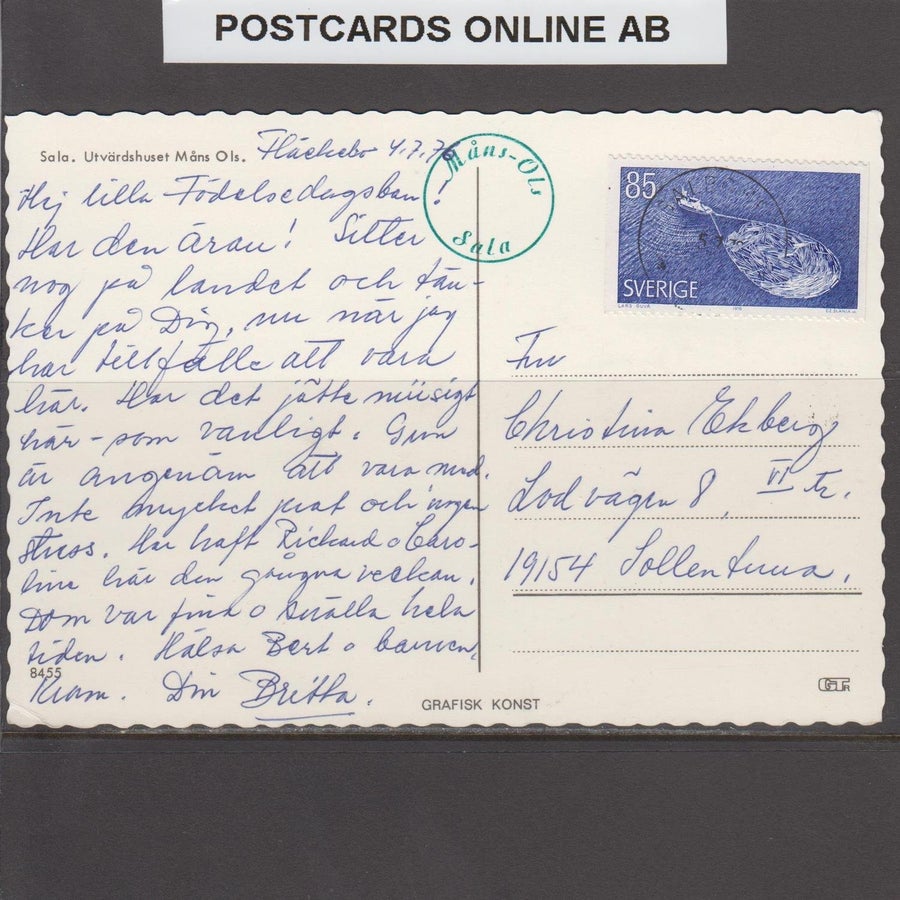 POSTCARDS ONLINE AB
Sala. Utvärdshuset Måns Ols.
Fläckebo 4.7.76
Måns-Ols
Sala
Hej lilla Födelsedagsban!
Har den äran! Sitter
nog på landet och tän-
ker på Dig, nu när jag
har tillfälle att vara
här. Har det jätte miisigt
här - som vanligt. Gun
är angenäm att vara med.
Inte mycket prat och ingen
stress. Har haft Rickard o Caro-
line här den gångna veckan.
Dom var fina o snälla hela
tiden. Hälsa Bert o barnen,
Kram. Din Britta.
8455
GRAFISK KONST
85
SVERIGE
Fru
Christina Ekberg
Lodvägen 8, VI tr.
19154 Sollentuna.